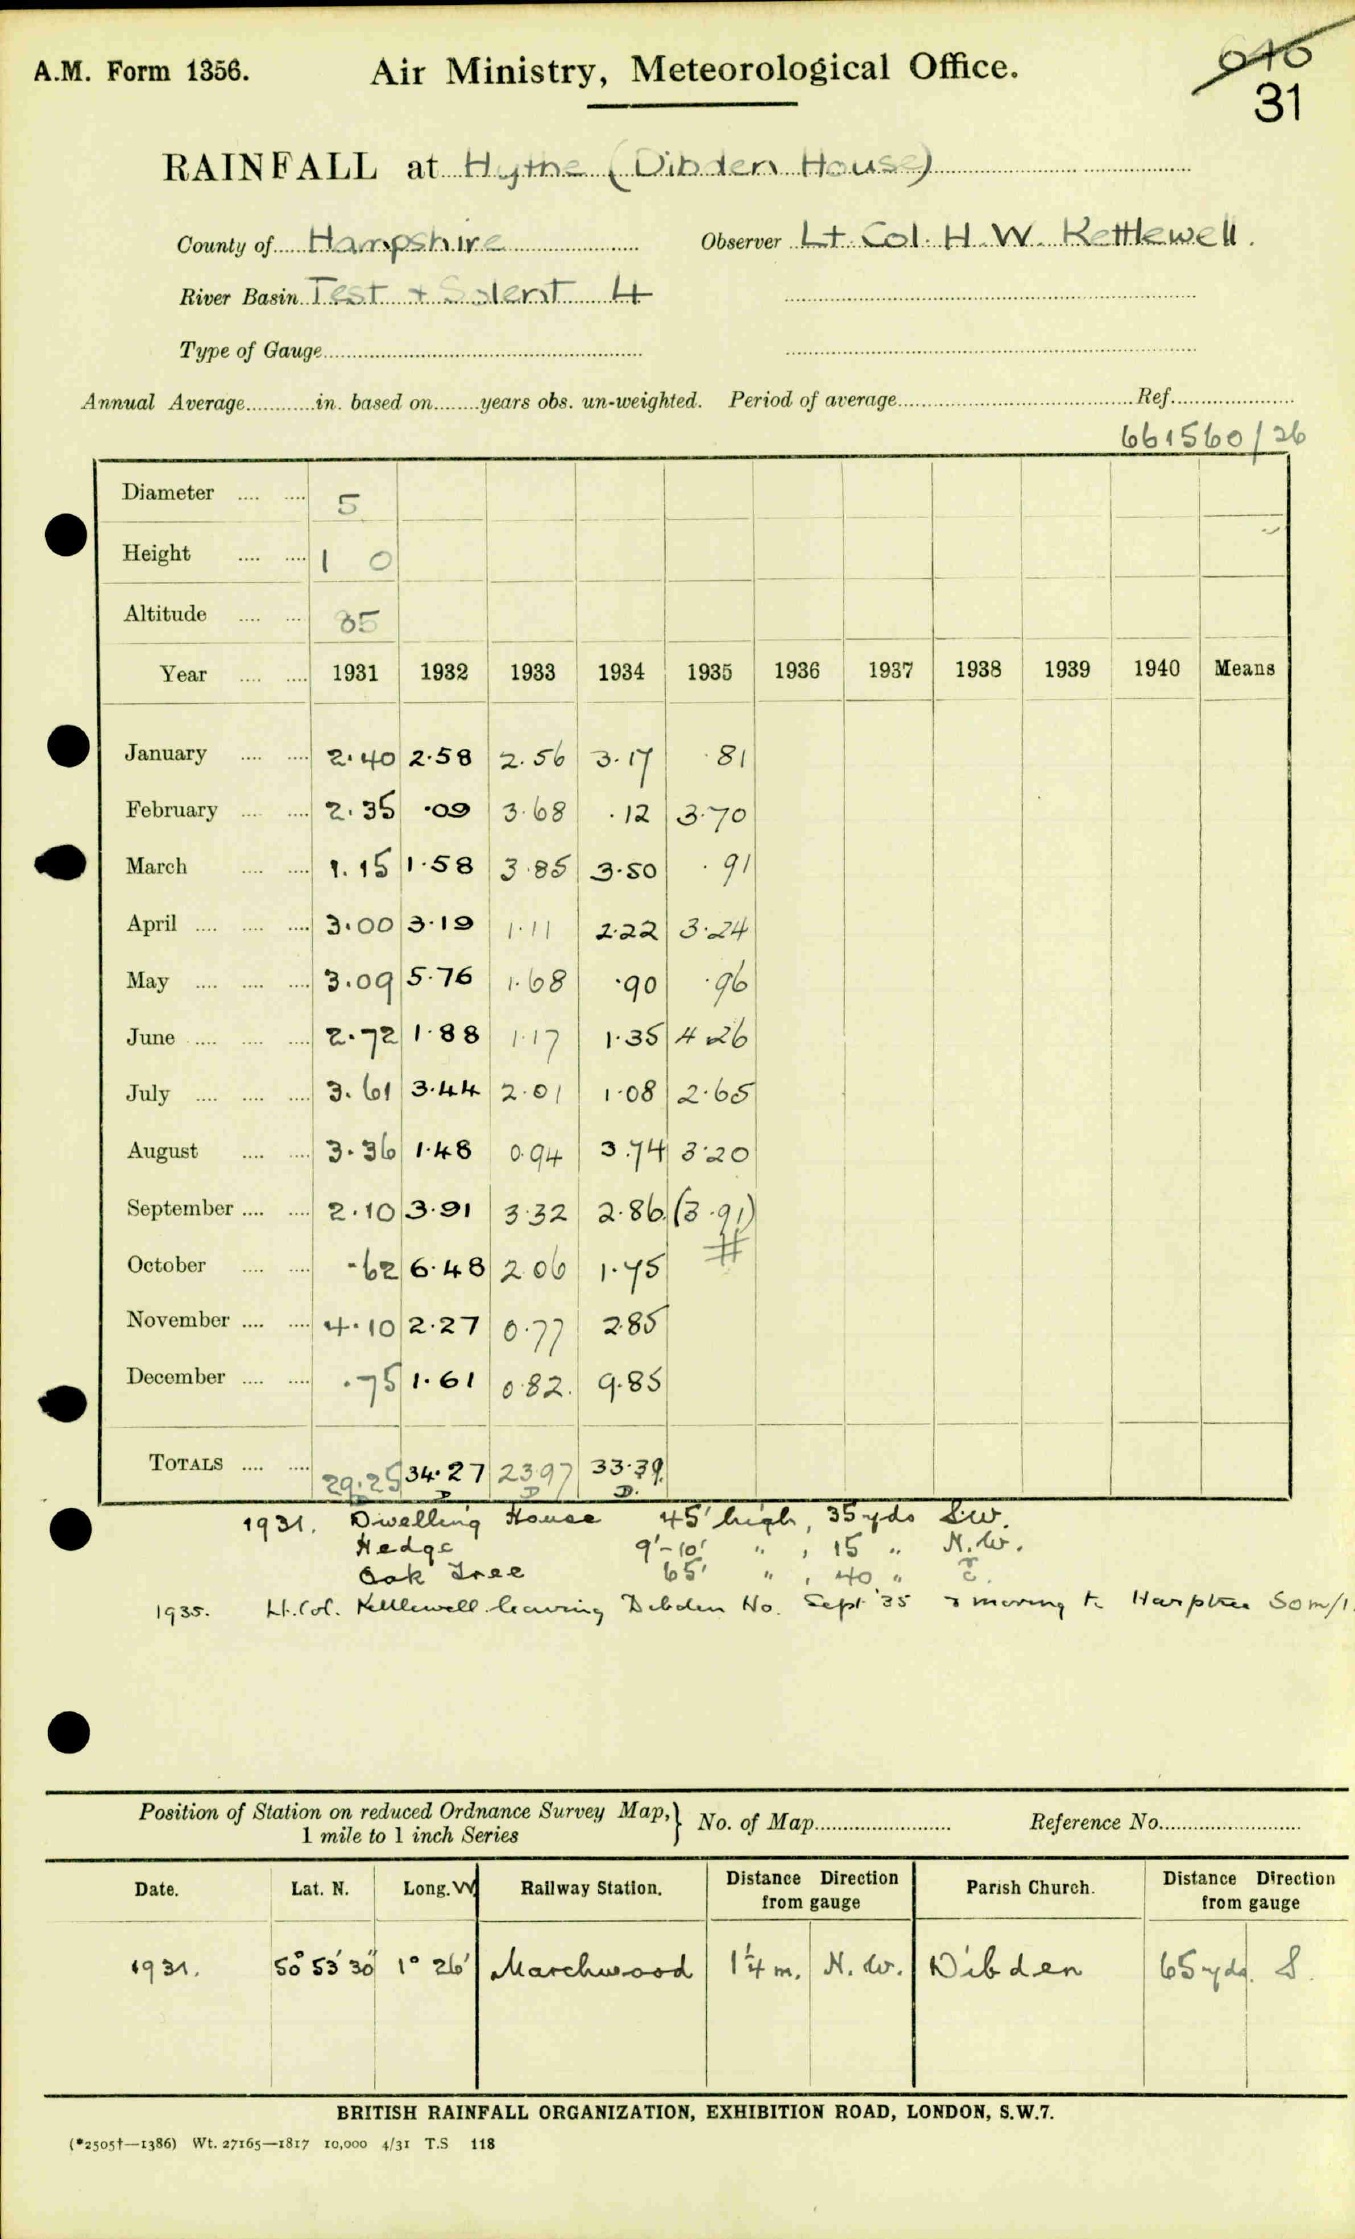 A.M. Form 1356. Air Ministry, Meteorological Office.
31
RAINFALL at Hythe (Dibden House)
County of Hampshire Observer Lt. Col. H. W. Kettlewell.
River Basin Test + Solent 4
Type of Gauge
Annual Average in. based on years obs. un-weighted. Period of average Ref.
661560/26
Diameter 5
Height 1 0
Altitude 85
Year 1931 1932 1933 1934 1935 1936 1937 1938 1939 1940 Means
January 2.40 2.58 2.56 3.17 .81
February 2.35 .09 3.68 .12 3.70
March 1.15 1.58 3.85 3.50 .91
April 3.00 3.19 1.11 2.22 3.24
May 3.09 5.76 1.68 .90 .96
June 2.72 1.88 1.17 1.35 4.26
July 3.61 3.44 2.01 1.08 2.65
August 3.36 1.48 0.94 3.74 3.20
September 2.10 3.91 3.32 2.86 (3.91)
October .62 6.48 2.06 1.75 #
November 4.10 2.27 0.77 2.85
December .75 1.61 0.82 9.85
TOTALS 29.25 34.27 23.97 33.39
D D D D.
1931. Dwelling House 45' high, 35 yds S.W.
Hedge 9'-10' " , 15 " N.W.
Oak Tree 65' " , 40 "
1935. Lt. Col. Kettlewell leaving Dibden Ho. Sept '35 & moving to Harptree Som/1.
Position of Station on reduced Ordnance Survey Map,} No. of Map Reference No.
1 mile to 1 inch Series
Date. Lat. N. Long. W Railway Station. Distance Direction from gauge Parish Church. Distance Direction from gauge
1931. 50° 53' 30" 1° 26' Marchwood 1¼ m. N.W. Dibden 65 yds. S.
BRITISH RAINFALL ORGANIZATION, EXHIBITION ROAD, LONDON, S.W.7.
(*2505†—1386) Wt. 27165—1817 10,000 4/31 T.S 118